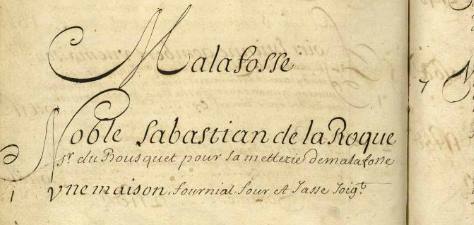 Malafosse
Noble Sabastian de la Roque
sr. du Bousquet pour sa metterie demalafosse
1 vne maison, fournial four et Jasse joigt.
7